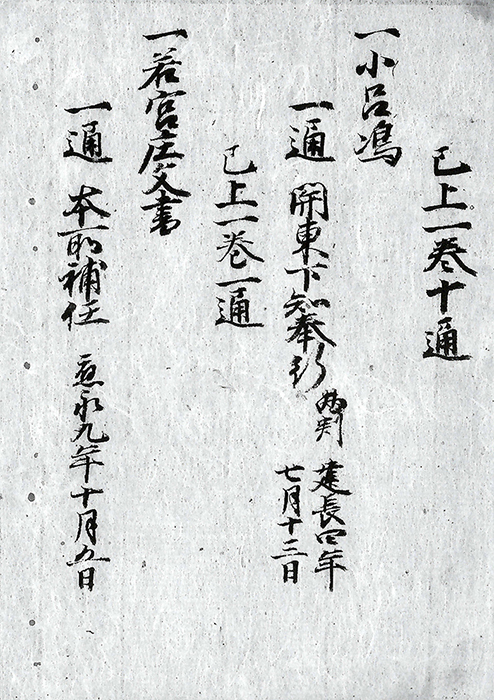 已上一巻十通
一小呂嶋
一通 関東下知奉行 両判 建長四年
七月十三日
已上一巻一通
一若宮庄文書
一通 本所補任 應永九年十月五日